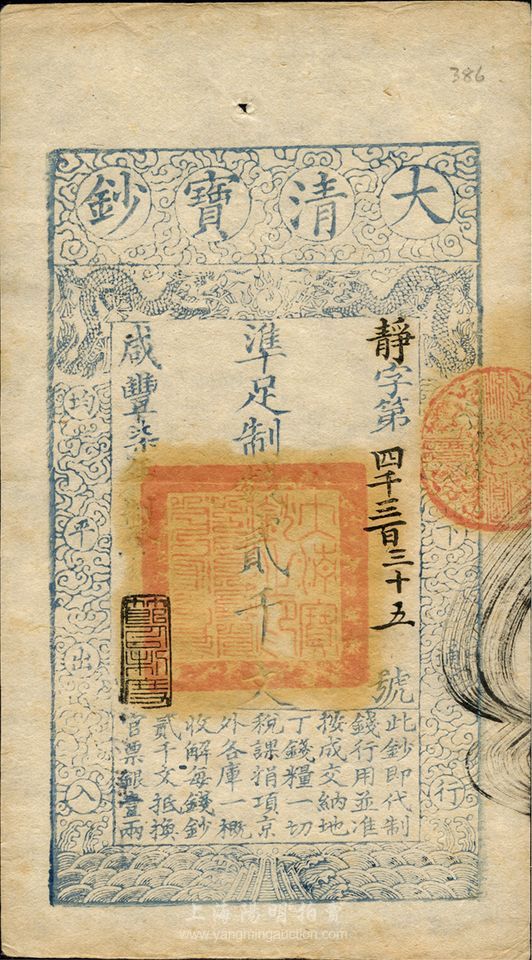 386
大清寶鈔
天下通行
均平出入
靜字第四千三百三十五號
準足制錢貳千文
咸豐柒年製
此鈔即代制
錢行用並准
按成交納地
丁錢糧一切
稅課捐項京
外各庫一概
收解每錢鈔
貳千文抵換
官票銀壹兩
上海陽明拍賣
www.yangmingauction.com